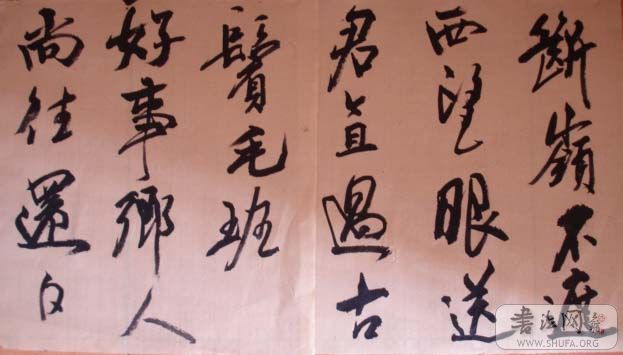 斷嶺不遮
西望眼送
君直過古
鬢毛班
好事鄉人
尚往還白
書法网
WWW.SHUFA.ORG